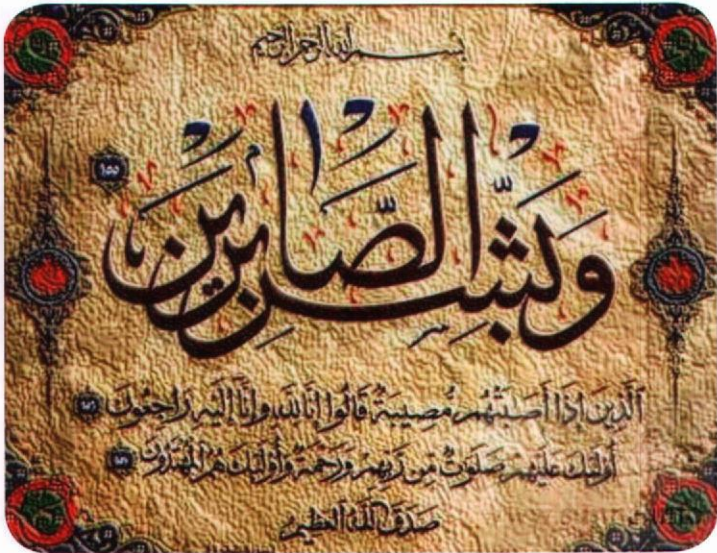 بسم الله الرحمن الرحيم
وَبَشِّرِ الصَّابِرِينَ ١٥٥
ٱلَّذِينَ إِذَآ أَصَٰبَتۡهُم مُّصِيبَةٞ قَالُوٓاْ إِنَّا لِلَّهِ وَإِنَّآ إِلَيۡهِ رَٰجِعُونَ ١٥٦
أُوْلَٰٓئِكَ عَلَيۡهِمۡ صَلَوَٰتٞ مِّن رَّبِّهِمۡ وَرَحۡمَةٞۖ وَأُوْلَٰٓئِكَ هُمُ ٱلۡمُهۡتَدُونَ
صدق الله العظيم